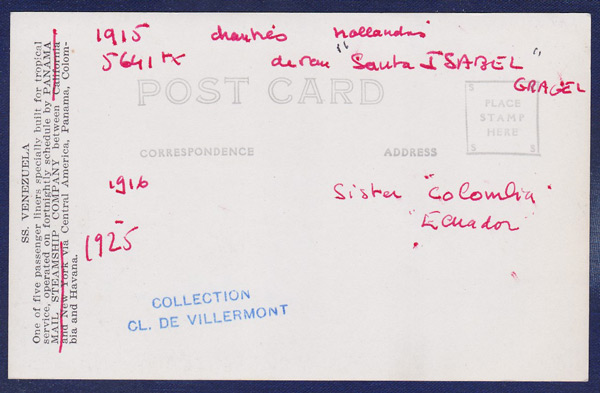 SS. VENEZUELA
One of five passenger liners specially built for tropical
service, operated on fortnightly schedule by PANAMA
MAIL STEAMSHIP COMPANY between California
and New York via Central America, Panama, Colom-
bia and Havana.
1915 hollandais
5641 tx "Santa ISABEL"
GRACEL
POST CARD
S S
PLACE
STAMP
HERE
S S
CORRESPONDENCE ADDRESS
1916 Sister "Colombia"
"Ecuador"
1925
COLLECTION
CL. DE VILLERMONT